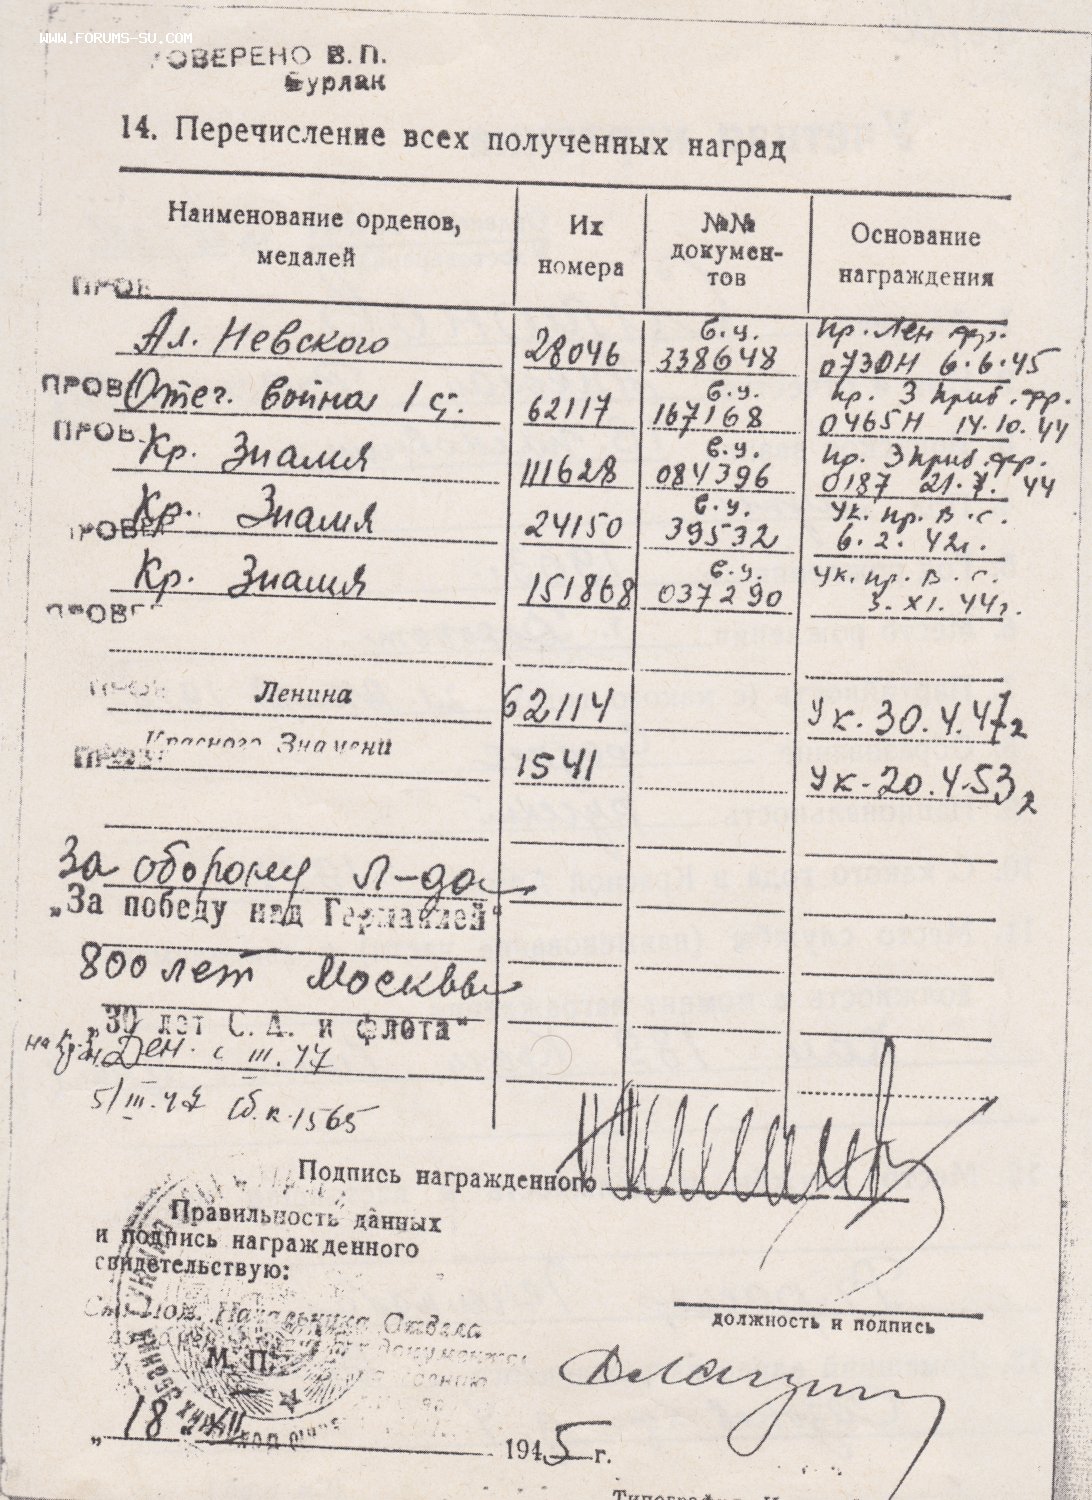 WWW.FORUMS-SU.COM
ОВЕРЕНО В. П.
Бурлак
14. Перечисление всех полученных наград
Наименование орденов, медалей
Их номера
№№ документов
Основание награждения
ПРОВ
Ал. Невского 28046 в.у. 338648 Пр. Лен фр. 0730Н 6.6.45
ПРОВ Отеч. война 1 ст. 62117 в.у. 167168 Пр. 3 Приб. фр. 0465Н 14.10.44
ПРОВ. Кр. Знамя 111628 в.у. 084396 Пр. 3 Приб. фр. 0187 21.7.44
Кр. Знамя 24150 в.у. 39532 Ук. Пр. В. С. 6.2.42г.
РОВЕР
Кр. Знамя 151868 в.у. 037290 Ук. Пр. В. С. 3.XI.44г.
ПРОВЕ
Ленина 62114 Ук. 30.4.47г
Красного Знамени 1541 Ук. 20.4.53г
За оборону Л-да
„За победу над Германией“
800 лет Москвы
„30 лет С. А. и флота“
Ден. с III.47
5/III.47 1565
Подпись награжденного
Правильность данных
и подпись награжденного
свидетельствую:
Ст. Пом. Начальника Отдела
М. П.
должность и подпись
„18 XII 1945 г.